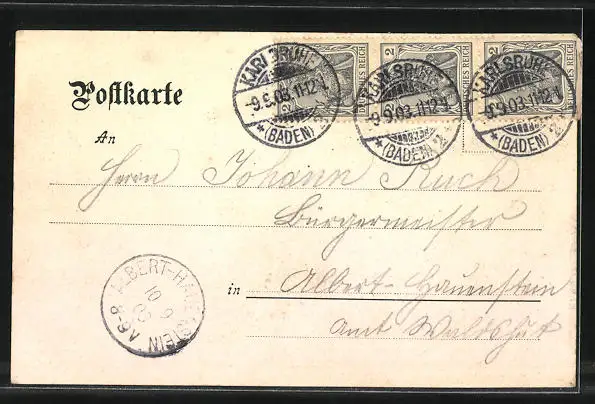 2 DEUTSCHES REICH 2 DEUTSCHES REICH 2 DEUTSCHES REICH
KARLSRUHE -9.9.03.11-12V. *(BADEN) 2
KARLSRUHE -9.9.03.11-12V. *(BADEN) 2
KARLSRUHE -9.9.03.11-12V. *(BADEN) 2
Postkarte
An
Herrn Johann Ruch
Bürgermeister
in Albert-Hauenstein
Amt Waldshut
ALBERT-HAUENSTEIN 10 9 03 6-8